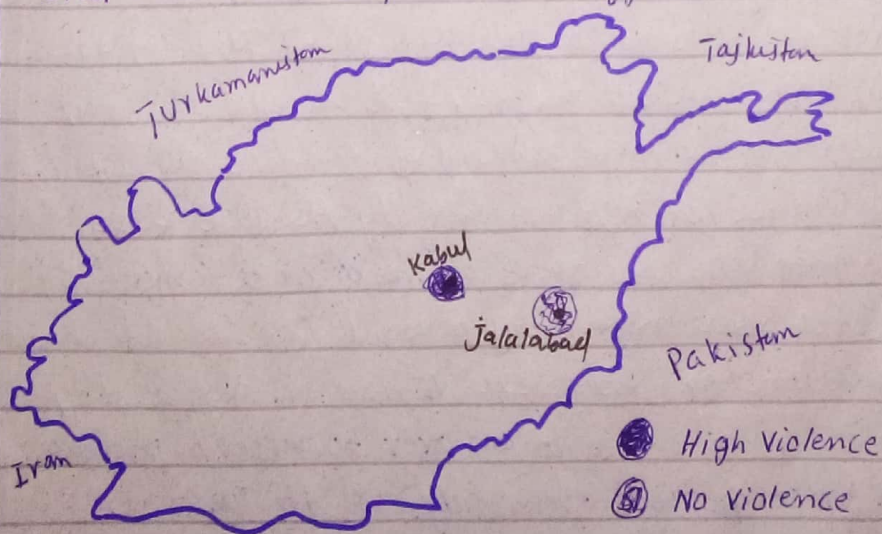 Turkamanistan
Tajkistan
Kabul
Jalalabad
Pakistan
Iran
High Violence
No Violence